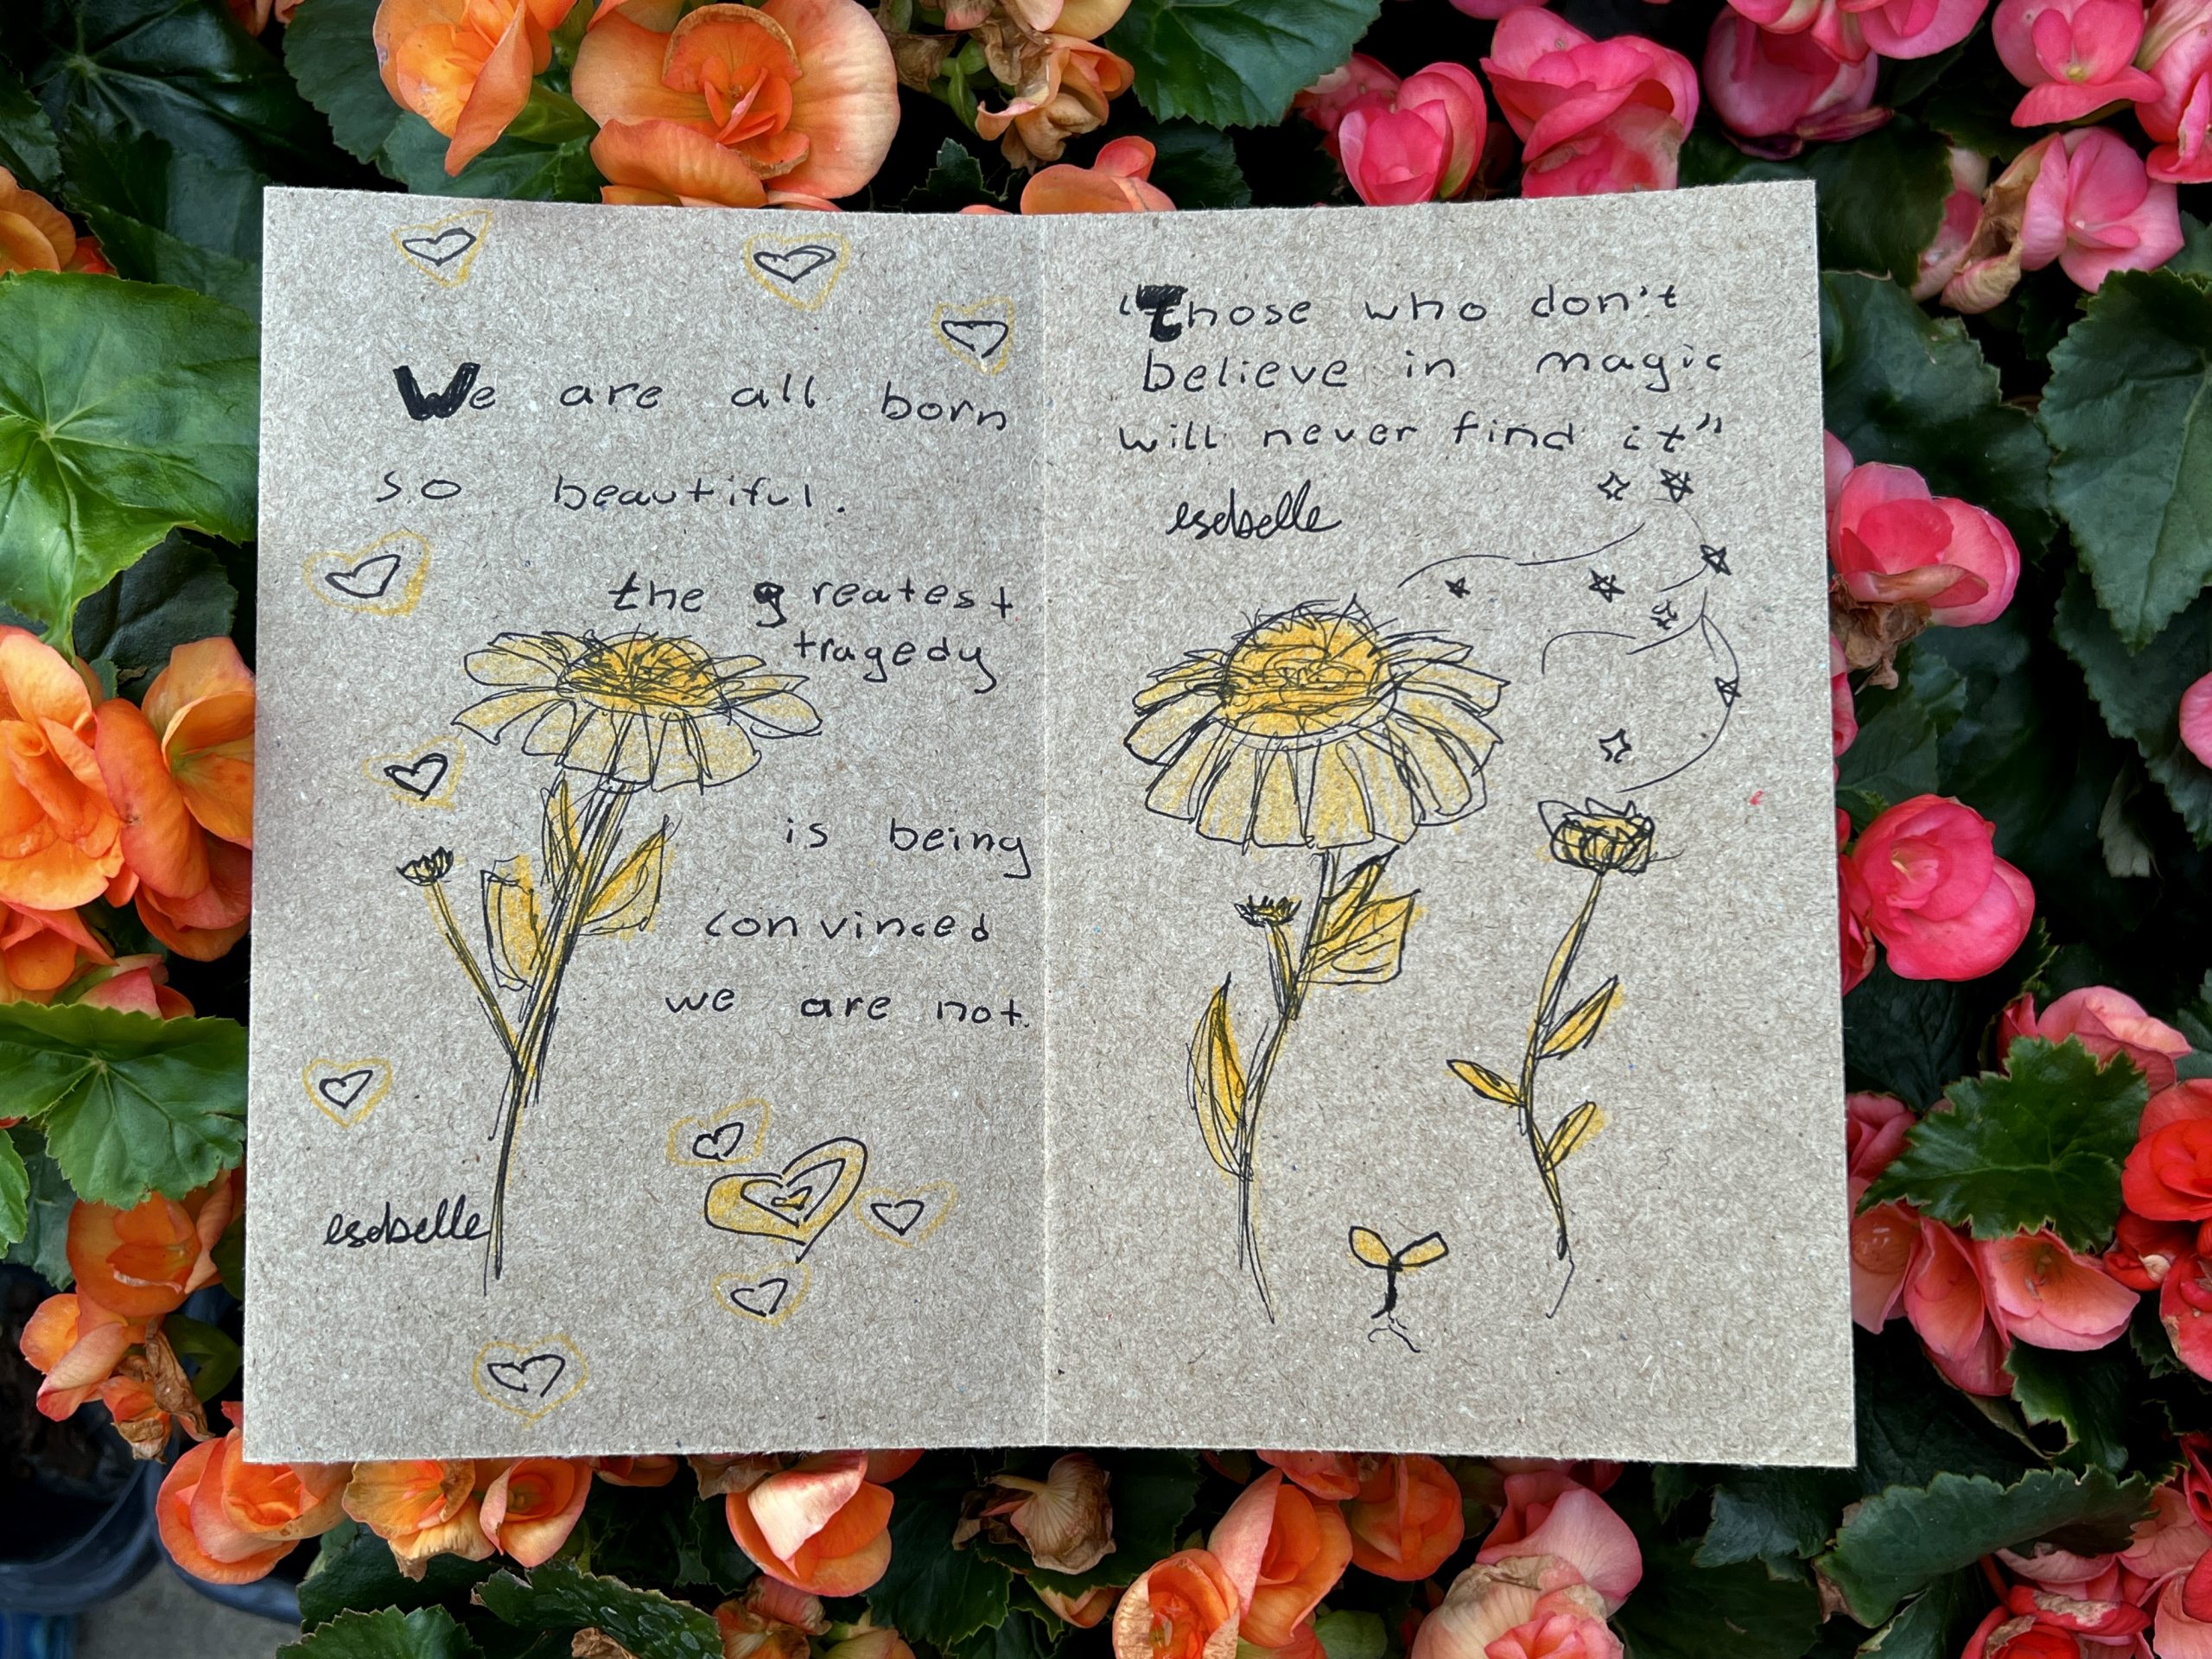 We are all born
so beautiful.
the greatest
tragedy
is being
convinced
we are not.
esabelle
"Those who don't
believe in magic
will never find it"
esabelle